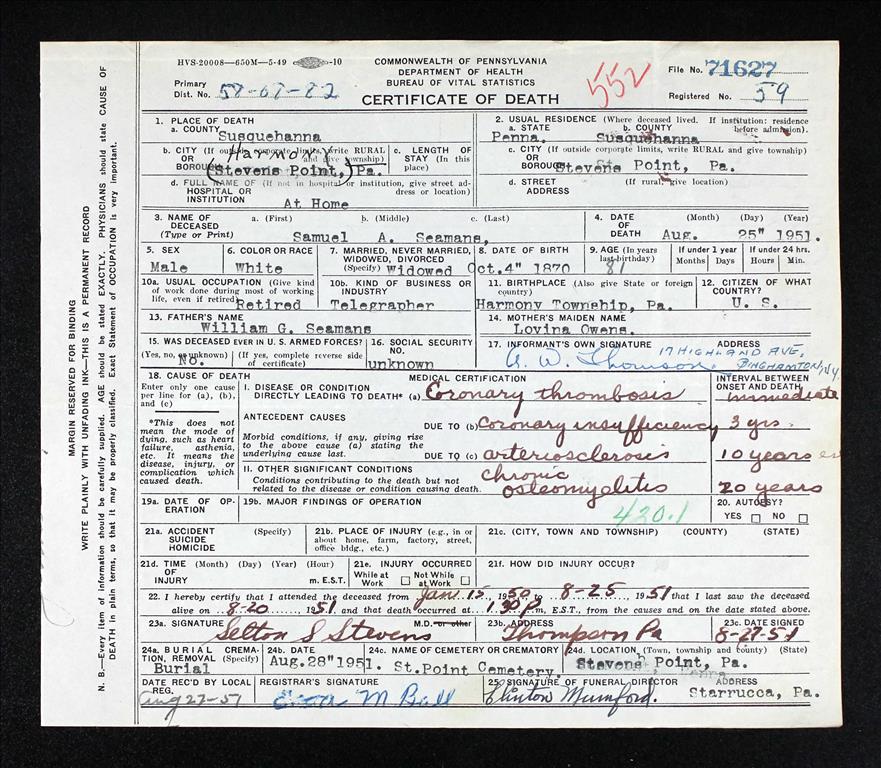 HVS-20008—650M—5-49 -10
COMMONWEALTH OF PENNSYLVANIA
DEPARTMENT OF HEALTH
BUREAU OF VITAL STATISTICS
CERTIFICATE OF DEATH
552
File No. 71627
Primary
Dist. No. 58-07-82
Registered No. 59
MARGIN RESERVED FOR BINDING
WRITE PLAINLY WITH UNFADING INK—THIS IS A PERMANENT RECORD
N. B.—Every item of information should be carefully supplied. AGE should be stated EXACTLY. PHYSICIANS should state CAUSE OF
DEATH in plain terms, so that it may be properly classified. Exact Statement of OCCUPATION is very important.
1. PLACE OF DEATH
a. COUNTY Susquehanna
2. USUAL RESIDENCE (Where deceased lived. If institution: residence before admission).
a. STATE Penna. b. COUNTY Susquehanna
b. CITY (If outside corporate limits, write RURAL and give township)
OR
BOROUGH
Harmony
(Stevens Point,) Pa.
c. LENGTH OF STAY (In this place)
c. CITY (If outside corporate limits, write RURAL and give township)
OR
BOROUGH Stevens Point, Pa.
d. FULL NAME OF (If not in hospital or institution, give street address or location)
HOSPITAL OR
INSTITUTION At Home
d. STREET ADDRESS (If rural give location)
3. NAME OF DECEASED (Type or Print)
a. (First) b. (Middle) c. (Last)
Samuel A. Seamans,
4. DATE OF DEATH (Month) (Day) (Year)
Aug. 25" 1951.
5. SEX
Male
6. COLOR OR RACE
White
7. MARRIED, NEVER MARRIED, WIDOWED, DIVORCED (Specify) Widowed
8. DATE OF BIRTH
Oct.4" 1870
9. AGE (In years last birthday)
81
If under 1 year
Months Days
If under 24 hrs.
Hours Min.
10a. USUAL OCCUPATION (Give kind of work done during most of working life, even if retired) Retired
10b. KIND OF BUSINESS OR INDUSTRY
Telegrapher
11. BIRTHPLACE (Also give State or foreign country)
Harmony Township, Pa.
12. CITIZEN OF WHAT COUNTRY?
U. S.
13. FATHER'S NAME
William G. Seamans
14. MOTHER'S MAIDEN NAME
Lovina Owens.
15. WAS DECEASED EVER IN U. S. ARMED FORCES?
(Yes, no, or unknown) (If yes, complete reverse side of certificate)
No.
16. SOCIAL SECURITY NO.
unknown
17. INFORMANT'S OWN SIGNATURE ADDRESS
A. W. Thomson, 17 HIGHLAND AVE, BINGHAMTON, N.Y.
18. CAUSE OF DEATH
Enter only one cause per line for (a), (b), and (c)
*This does not mean the mode of dying, such as heart failure, asthenia, etc. It means the disease, injury, or complication which caused death.
MEDICAL CERTIFICATION
INTERVAL BETWEEN ONSET AND DEATH
I. DISEASE OR CONDITION
DIRECTLY LEADING TO DEATH* (a) Coronary thrombosis immediate
ANTECEDENT CAUSES
Morbid conditions, if any, giving rise to the above cause (a) stating the underlying cause last.
DUE TO (b) Coronary insufficiency 3 yrs.
DUE TO (c) arteriosclerosis 10 years
II. OTHER SIGNIFICANT CONDITIONS
Conditions contributing to the death but not related to the disease or condition causing death.
chronic
osteomyelitis 20 years
19a. DATE OF OPERATION
19b. MAJOR FINDINGS OF OPERATION
420.1
20. AUTOPSY?
YES NO
21a. ACCIDENT SUICIDE HOMICIDE (Specify)
21b. PLACE OF INJURY (e.g., in or about home, farm, factory, street, office bldg., etc.)
21c. (CITY, TOWN, AND TOWNSHIP) (COUNTY) (STATE)
21d. TIME OF INJURY (Month) (Day) (Year) (Hour) m. E.S.T.
21e. INJURY OCCURRED
While at Work Not While at Work
21f. HOW DID INJURY OCCUR?
22. I hereby certify that I attended the deceased from Jan 15, 1950 to 8-25, 1951 that I last saw the deceased
alive on 8-20, 1951, and that death occurred at 1:30 P m., E.S.T., from the causes and on the date stated above.
23a. SIGNATURE M.D. or other
Selton S Stevens
23b. ADDRESS
Thompson Pa
23c. DATE SIGNED
8-27-51
24a. BURIAL CREMATION, REMOVAL (Specify)
Burial
24b. DATE
Aug.28"1951.
24c. NAME OF CEMETERY OR CREMATORY
St.Point Cemetery.
24d. LOCATION (Town, township, and county) (State)
Stevens Point, Pa.
Penna.
DATE REC'D BY LOCAL REG.
Aug 27-51
REGISTRAR'S SIGNATURE
M Ball
25. SIGNATURE OF FUNERAL DIRECTOR ADDRESS
Clinton Mumford. Starrucca, Pa.